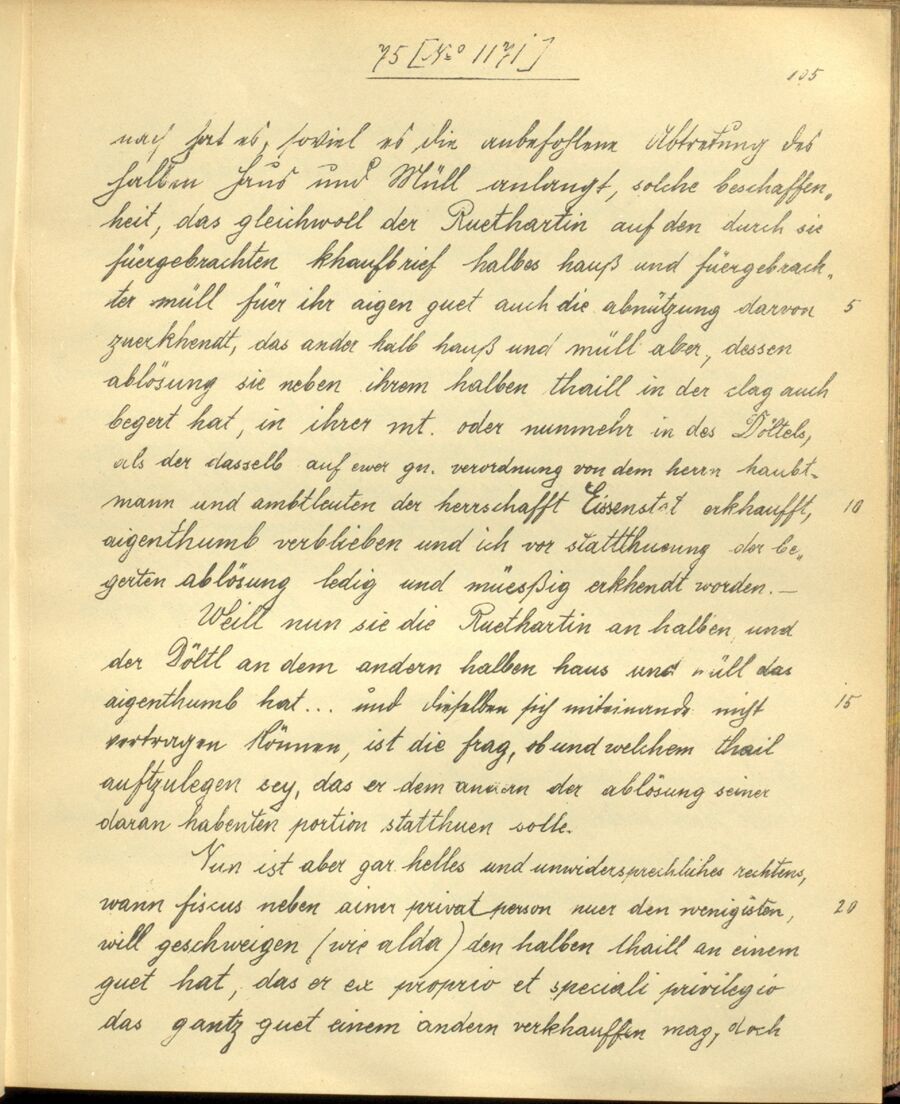 75 [No 1171]
105
nach hat es, soviel es die anbefohlene Abtretung des
halben Haus und Müll anlangt, solche beschaffen„
heit, das gleichwoll der Ruethartin auf den durch sie
füergebrachten khaufbrief halbes hauß und füergebrach„
ter müll füer ihr aigen guet auch die abnützung darvon 5
zuerkhendt, das ander halb hauß und müll aber, dessen
ablösung sie neben ihrem halben thaill in der clag auch
begert hat, in ihrer mt. oder nunmehr in des Döltels,
als der dasselb auf ewer gn. verordnung von dem herrn haubt-
mann und ambtleuten der herrschafft Eissenstat erkhaufft, 10
aigenthumb verblieben und ich vor stattthueung der be„
gerten ablösung ledig und müesßig erkhendt worden. —
Weill nun sie die Ruethartin an halben und
der Döltl an dem andern halben haus und müll das
aigenthumb hat... und dieselben sich miteinander nicht 15
vertragen können, ist die frag, ob und welchem thail
auftzulegen sey, das er dem andern der ablösung seiner
daran habenten portion statthuen solle.
Nun ist aber gar helles und unwidersprechliches rechtens,
wann fiscus neben ainer privat person nuer den wenigisten, 20
will geschweigen (wie alda) den halben thaill an einem
guet hat, das er ex proprio et speciali privilegio
das gantz guet einem andern verkhauffen mag, doch